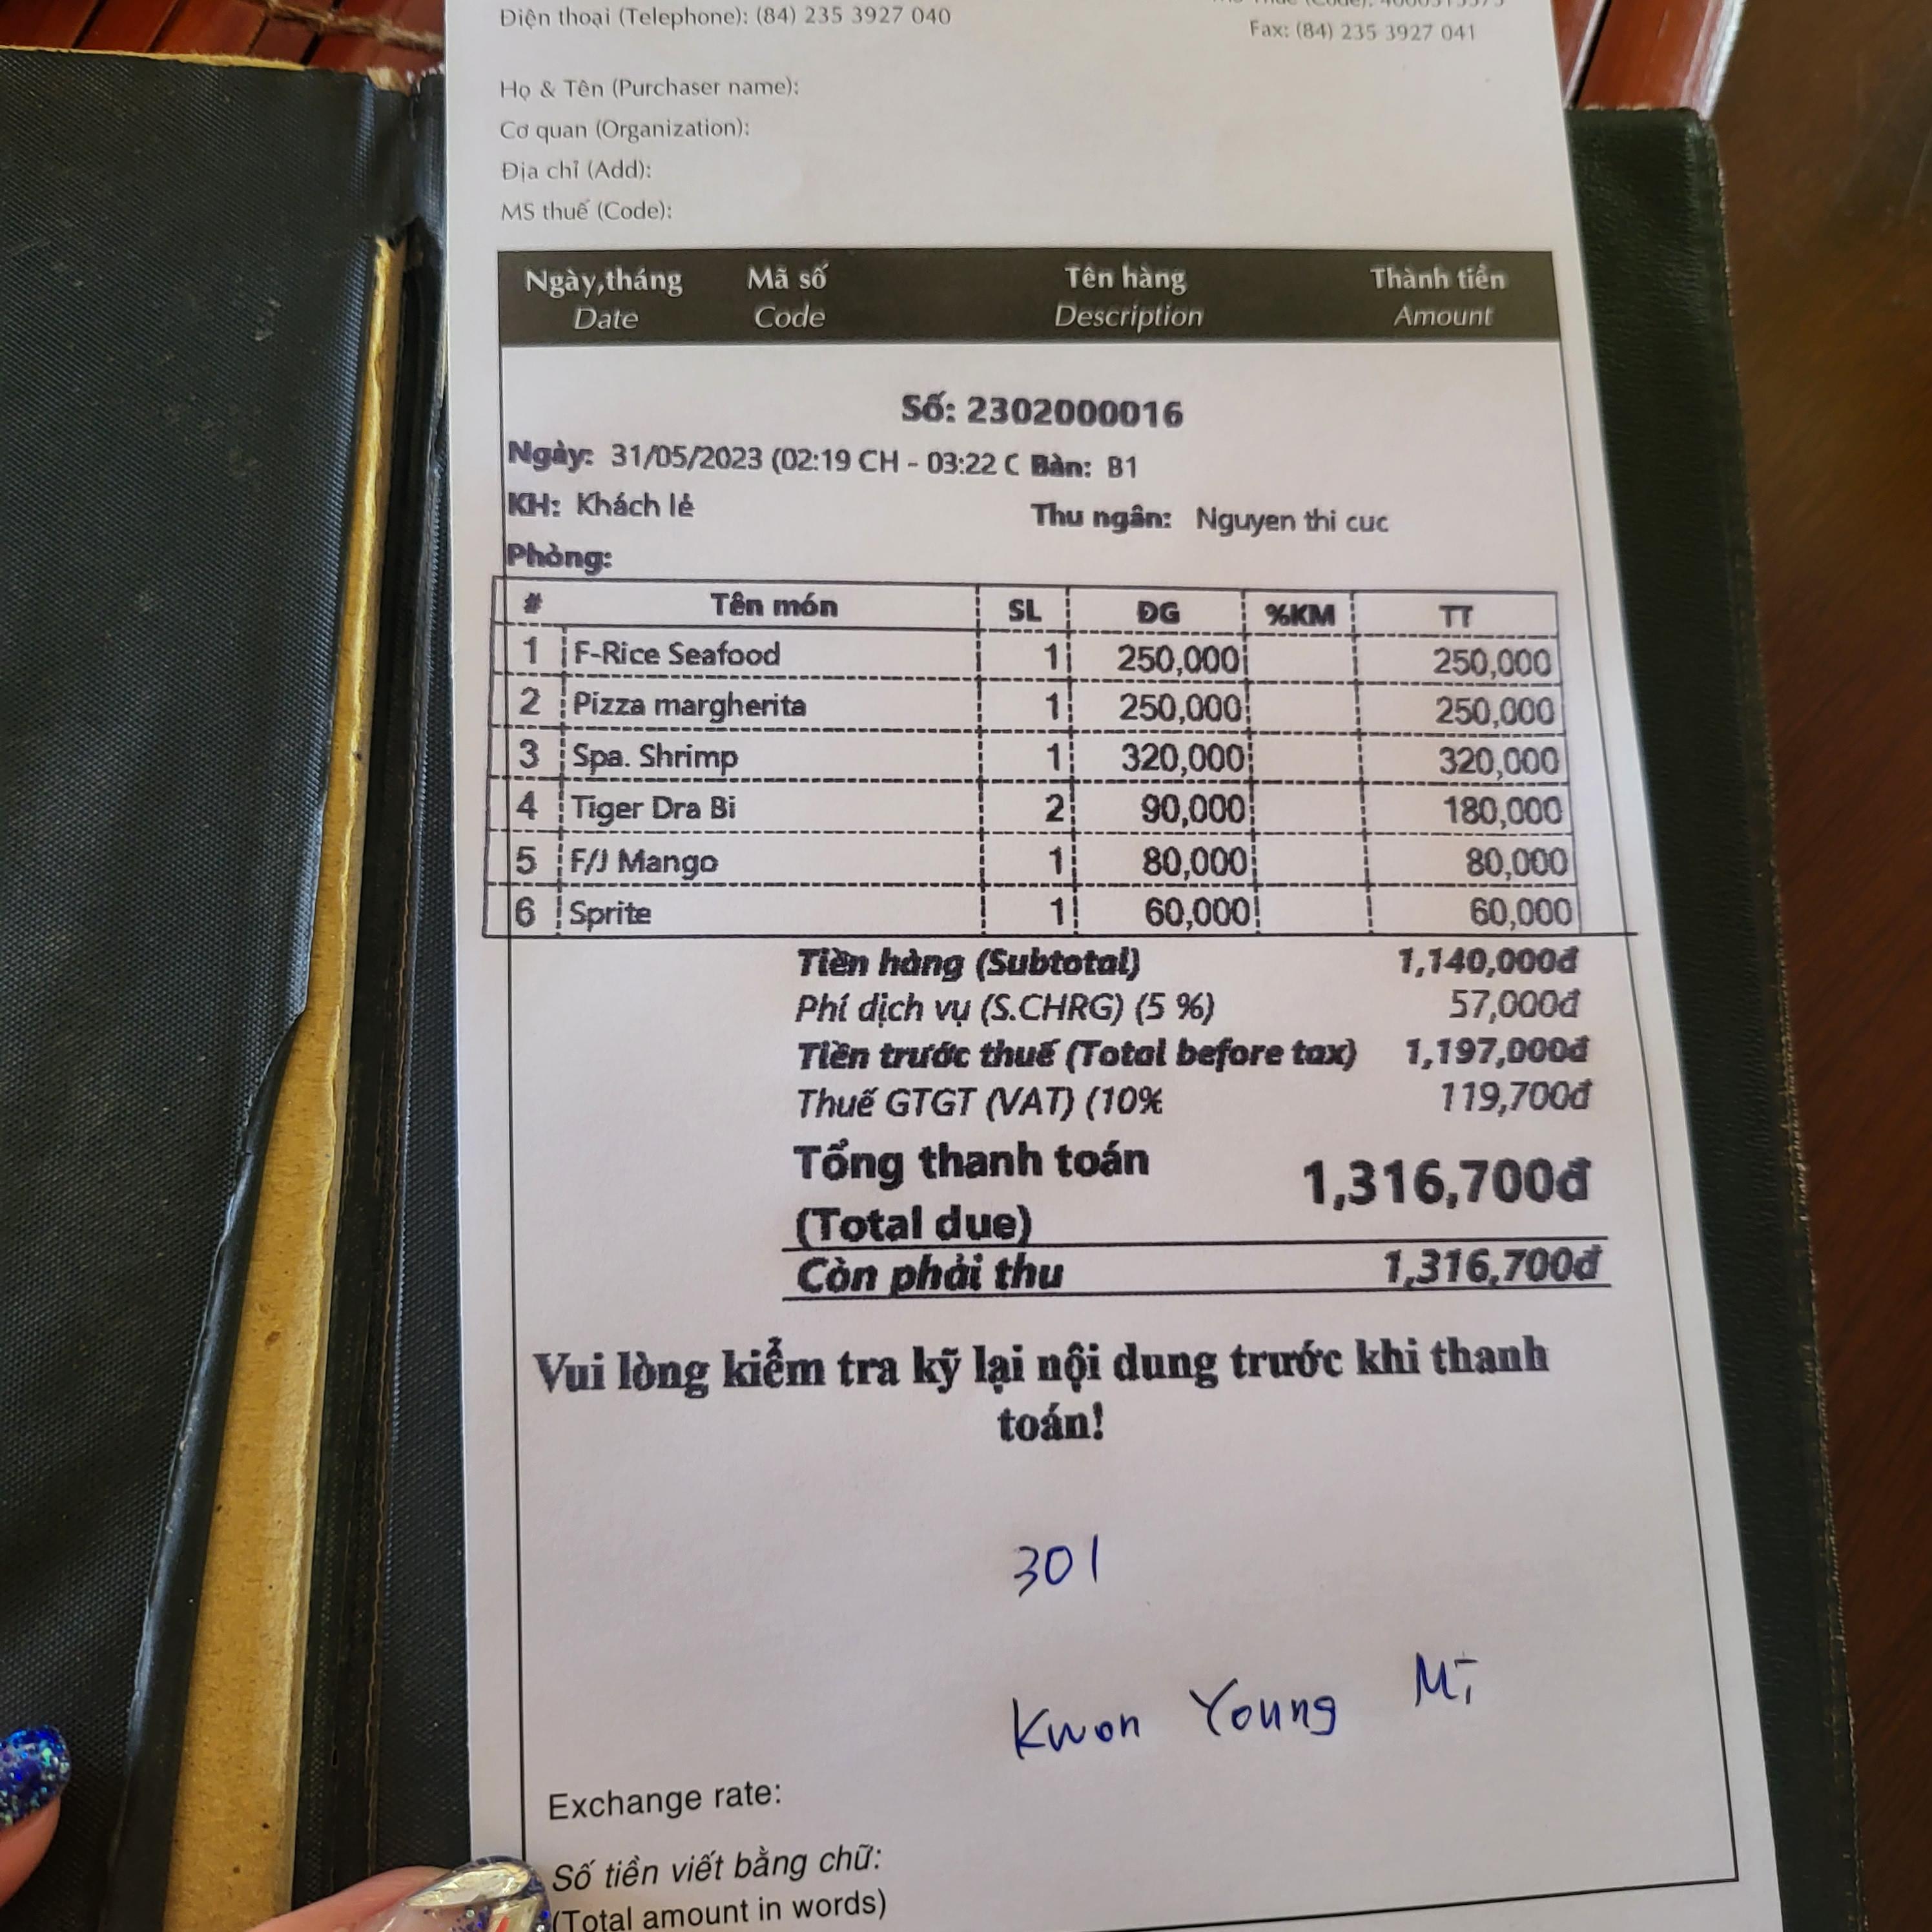 Điện thoại (Telephone): (84) 235 3927 040
Fax: (84) 235 3927 041
Họ & Tên (Purchaser name):
Cơ quan (Organization):
Địa chỉ (Add):
MS thuế (Code):
Ngày,tháng Mã số Tên hàng Thành tiền
Date Code Description Amount
Số: 2302000016
Ngày: 31/05/2023 (02:19 CH - 03:22 C Bàn: B1
KH: Khách lẻ Thu ngân: Nguyen thi cuc
Phòng:
# Tên món SL ĐG %KM TT
1 F-Rice Seafood 1 250,000 250,000
2 Pizza margherita 1 250,000 250,000
3 Spa. Shrimp 1 320,000 320,000
4 Tiger Dra Bi 2 90,000 180,000
5 F/J Mango 1 80,000 80,000
6 Sprite 1 60,000 60,000
Tiền hàng (Subtotal) 1,140,000đ
Phí dịch vụ (S.CHRG) (5 %) 57,000đ
Tiền trước thuế (Total before tax) 1,197,000đ
Thuế GTGT (VAT) (10% 119,700đ
Tổng thanh toán 1,316,700đ
(Total due)
Còn phải thu 1,316,700đ
Vui lòng kiểm tra kỹ lại nội dung trước khi thanh
toán!
301
Kwon Young Mi
Exchange rate:
Số tiền viết bằng chữ:
(Total amount in words)